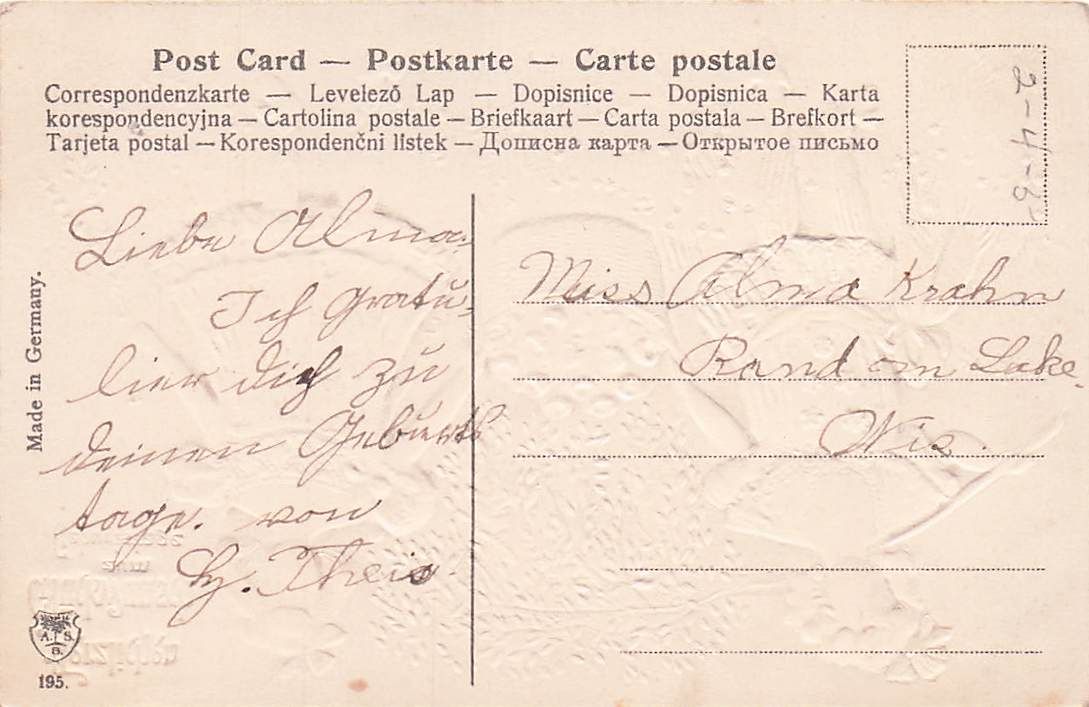 Post Card — Postkarte — Carte postale
Correspondenzkarte — Levelező Lap — Dopisnice — Dopisnica — Karta
korespondencyjna — Cartolina postale — Briefkaart — Carta postala — Brefkort —
Tarjeta postal — Korespondenční lístek — Дописна карта — Открытое письмо
2-4-
Liebe Alma.
Ich gratu-
lier dich zu
deinen Geburts
tage. von
Hy. Theis.
Miss Alma Krahn
Random Lake.
Wis.
Made in Germany.
A. S.
B.
195.